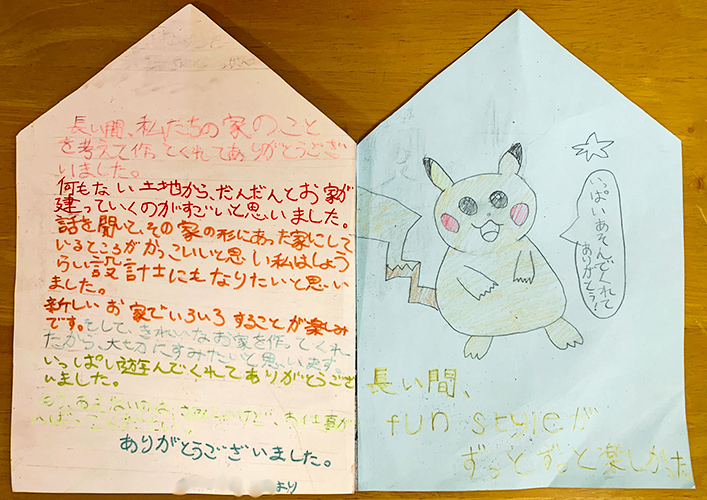 長い間、私たちの家のこと
を考えて作ってくれてありがとうござ
いました。
何もない土地から、だんだんとお家が
建っていくのがすごいと思いました。
話を聞いて、その家の形にあった家にして
いるところがかっこいいと思い私はしょう
らい設計士にもなりたいと思い
ました。
新しいお家でいろいろすることが楽しみ
です。そして、きれいなお家を作ってくれ
たから、大切にすみたいと思います。
いっぱい遊んでくれてありがとうござ
いました。
もうあえないのは、さみしいけど、お仕事が
ありがとうございました。
より
いっぱいあそんでくれて
ありがとう!
長い間、
fun styleが
ずっとずっと楽しかった